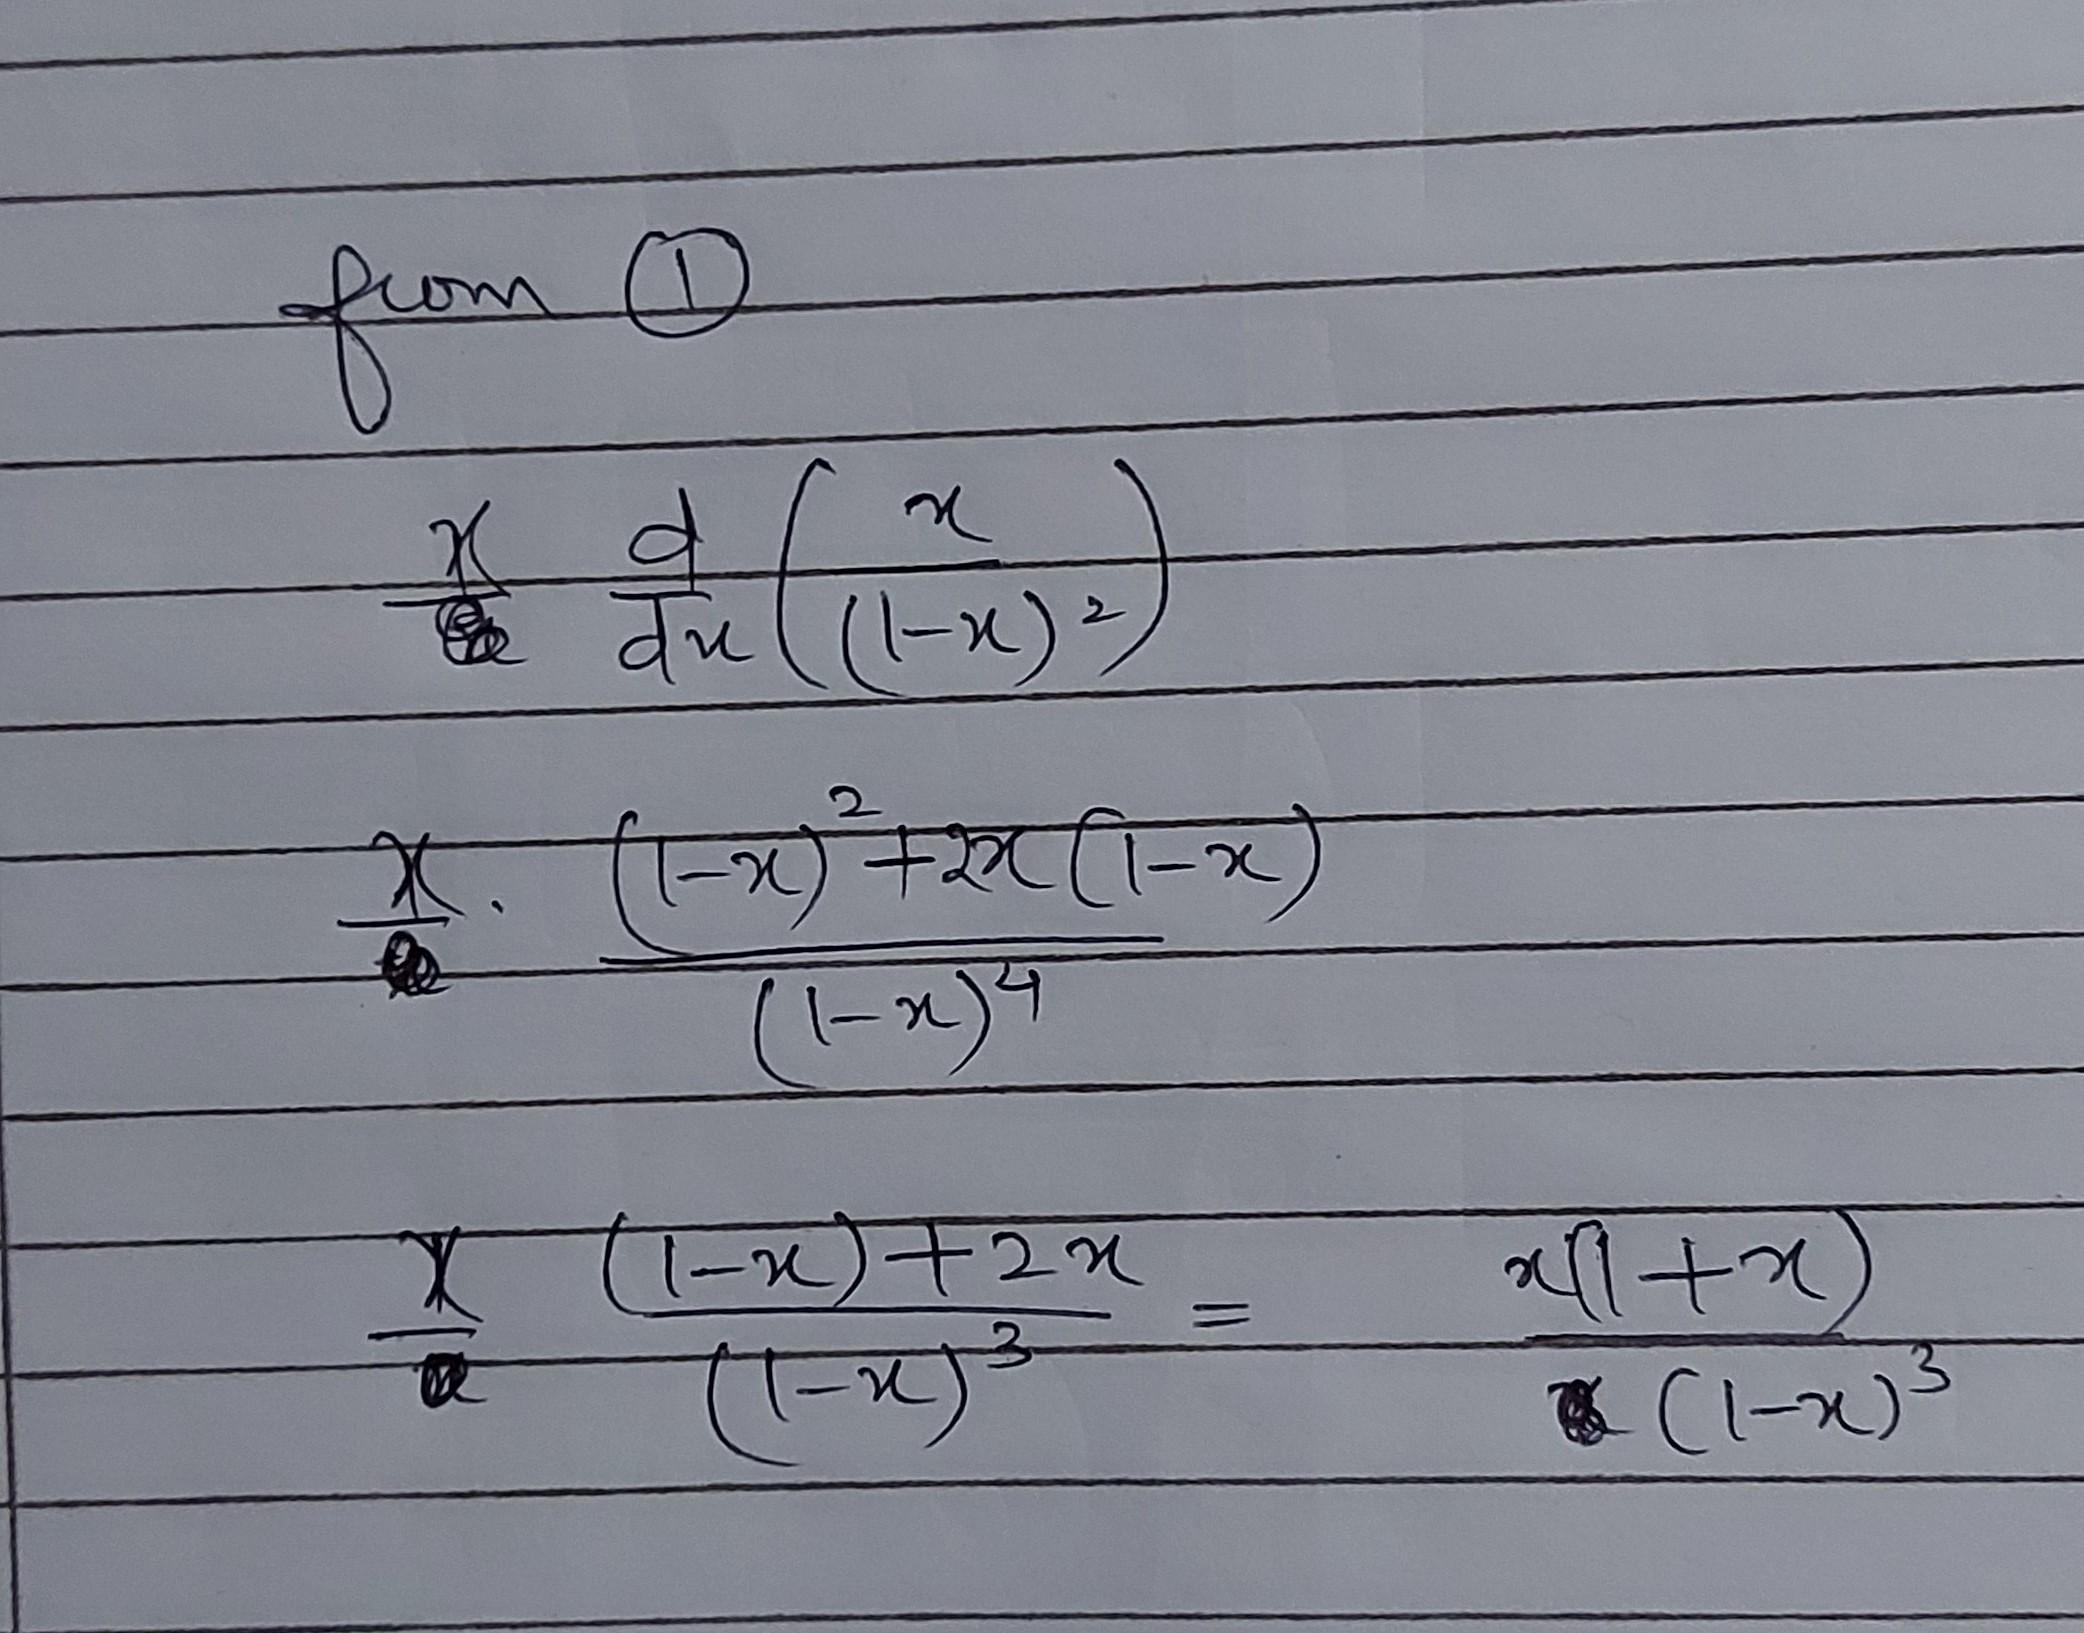 from ①
x d/dx (x/(1-x)²)
x · ((1-x)² + 2x(1-x))/(1-x)⁴
x ((1-x)+2x)/(1-x)³ = x(1+x)/(1-x)³